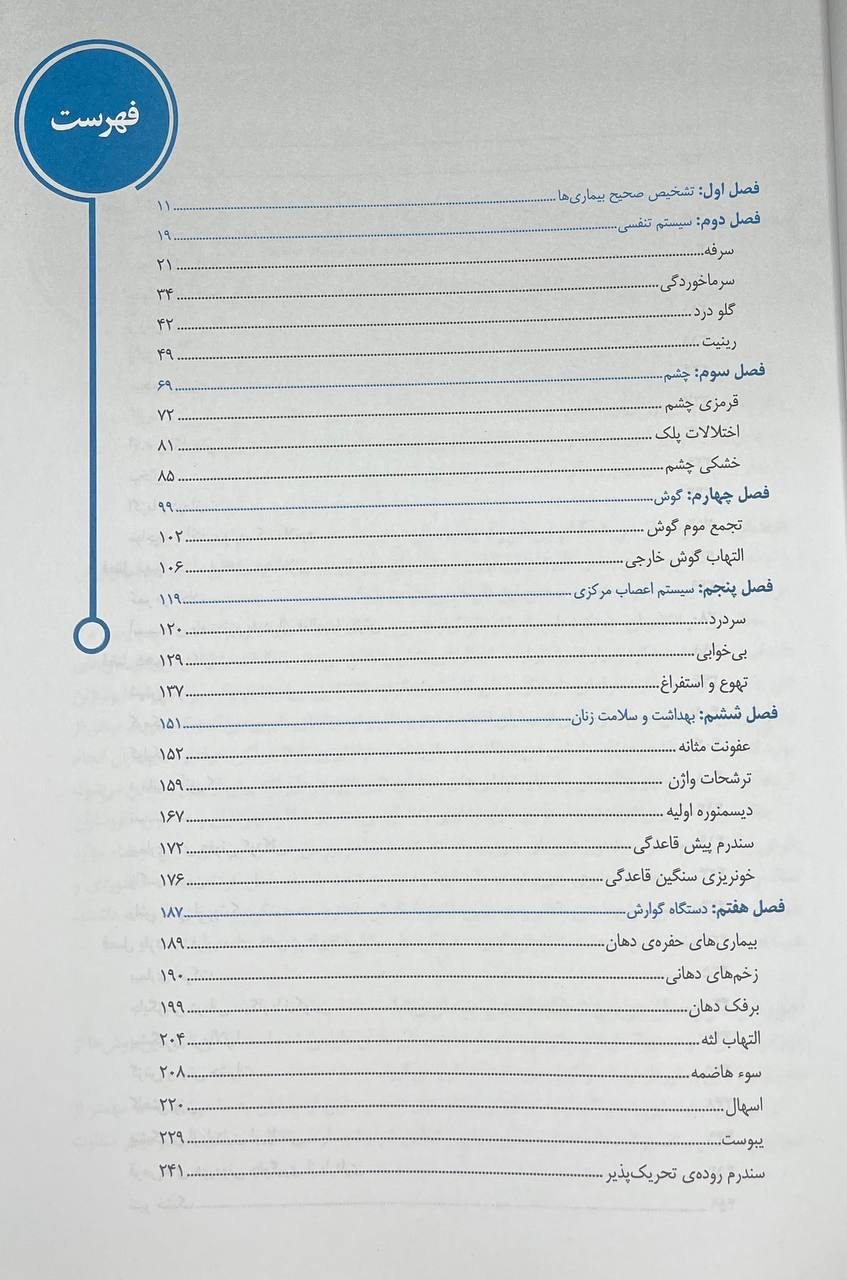 فهرست
فصل اول: تشخیص صحیح بیماری‌ها ۱۱
فصل دوم: سیستم تنفسی ۱۹
سرفه ۲۱
سرماخوردگی ۳۴
گلو درد ۴۲
رینیت ۴۹
فصل سوم: چشم ۶۹
قرمزی چشم ۷۲
اختلالات پلک ۸۱
خشکی چشم ۸۵
فصل چهارم: گوش ۹۹
تجمع موم گوش ۱۰۲
التهاب گوش خارجی ۱۰۶
فصل پنجم: سیستم اعصاب مرکزی ۱۱۹
سردرد ۱۲۰
بی‌خوابی ۱۲۹
تهوع و استفراغ ۱۳۷
فصل ششم: بهداشت و سلامت زنان ۱۵۱
عفونت مثانه ۱۵۲
ترشحات واژن ۱۵۹
دیسمنوره اولیه ۱۶۷
سندرم پیش قاعدگی ۱۷۲
خونریزی سنگین قاعدگی ۱۷۶
فصل هفتم: دستگاه گوارش ۱۸۷
بیماری‌های حفره‌ی دهان ۱۸۹
زخم‌های دهانی ۱۹۰
برفک دهان ۱۹۹
التهاب لثه ۲۰۴
سوء هاضمه ۲۰۸
اسهال ۲۲۰
یبوست ۲۲۹
سندرم روده‌ی تحریک‌پذیر ۲۴۱